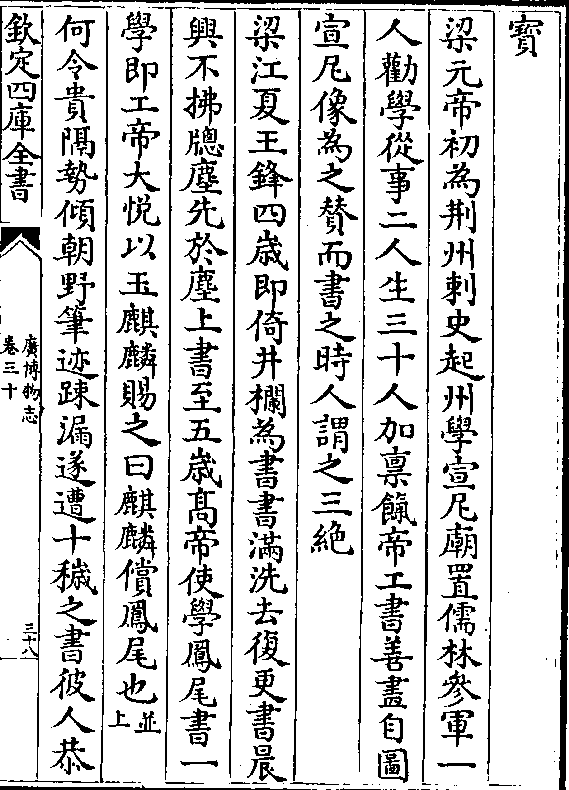 寳
梁元帝初為荆州刺史起州學宣尼廟置儒林參軍一
人勸學從事二人生三十人加稟餼帝工書善畫自圖
宣尼像為之賛而書之時人謂之三絶
梁江夏王鋒四歳即倚井欄為書書滿洗去復更書晨
興不拂牕塵先於塵上書至五歳髙帝使學鳳尾書一
學即工帝大悦以玉麒麟賜之曰麒麟償鳳尾也並上
何令貴隔勢傾朝野筆迹踈漏遂遭十穢之書彼人恭
欽定四庫全書
廣博物志
卷三十
三十八